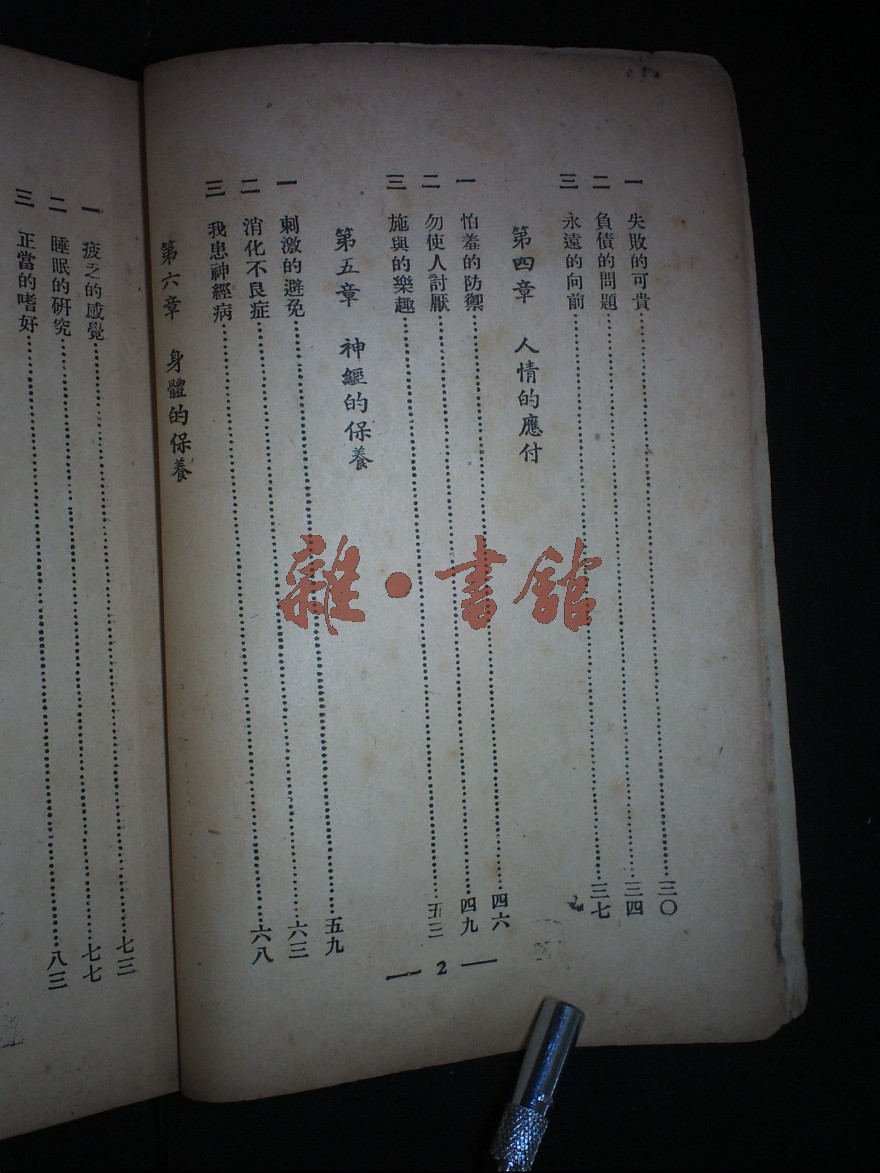 一 失敗的可貴……三〇
二 負債的問題……三四
三 永遠的向前……三七
第四章 人情的應付
一 怕羞的防禦……四六
二 勿使人討厭……四九
三 施與的樂趣……五三
第五章 神經的保養
一 刺激的避免……五九
二 消化不良症……六三
三 我患神經病……六八
第六章 身體的保養
— 2 —
一 疲乏的感覺……七三
二 睡眠的研究……七七
三 正當的嗜好……八三
雜·書館